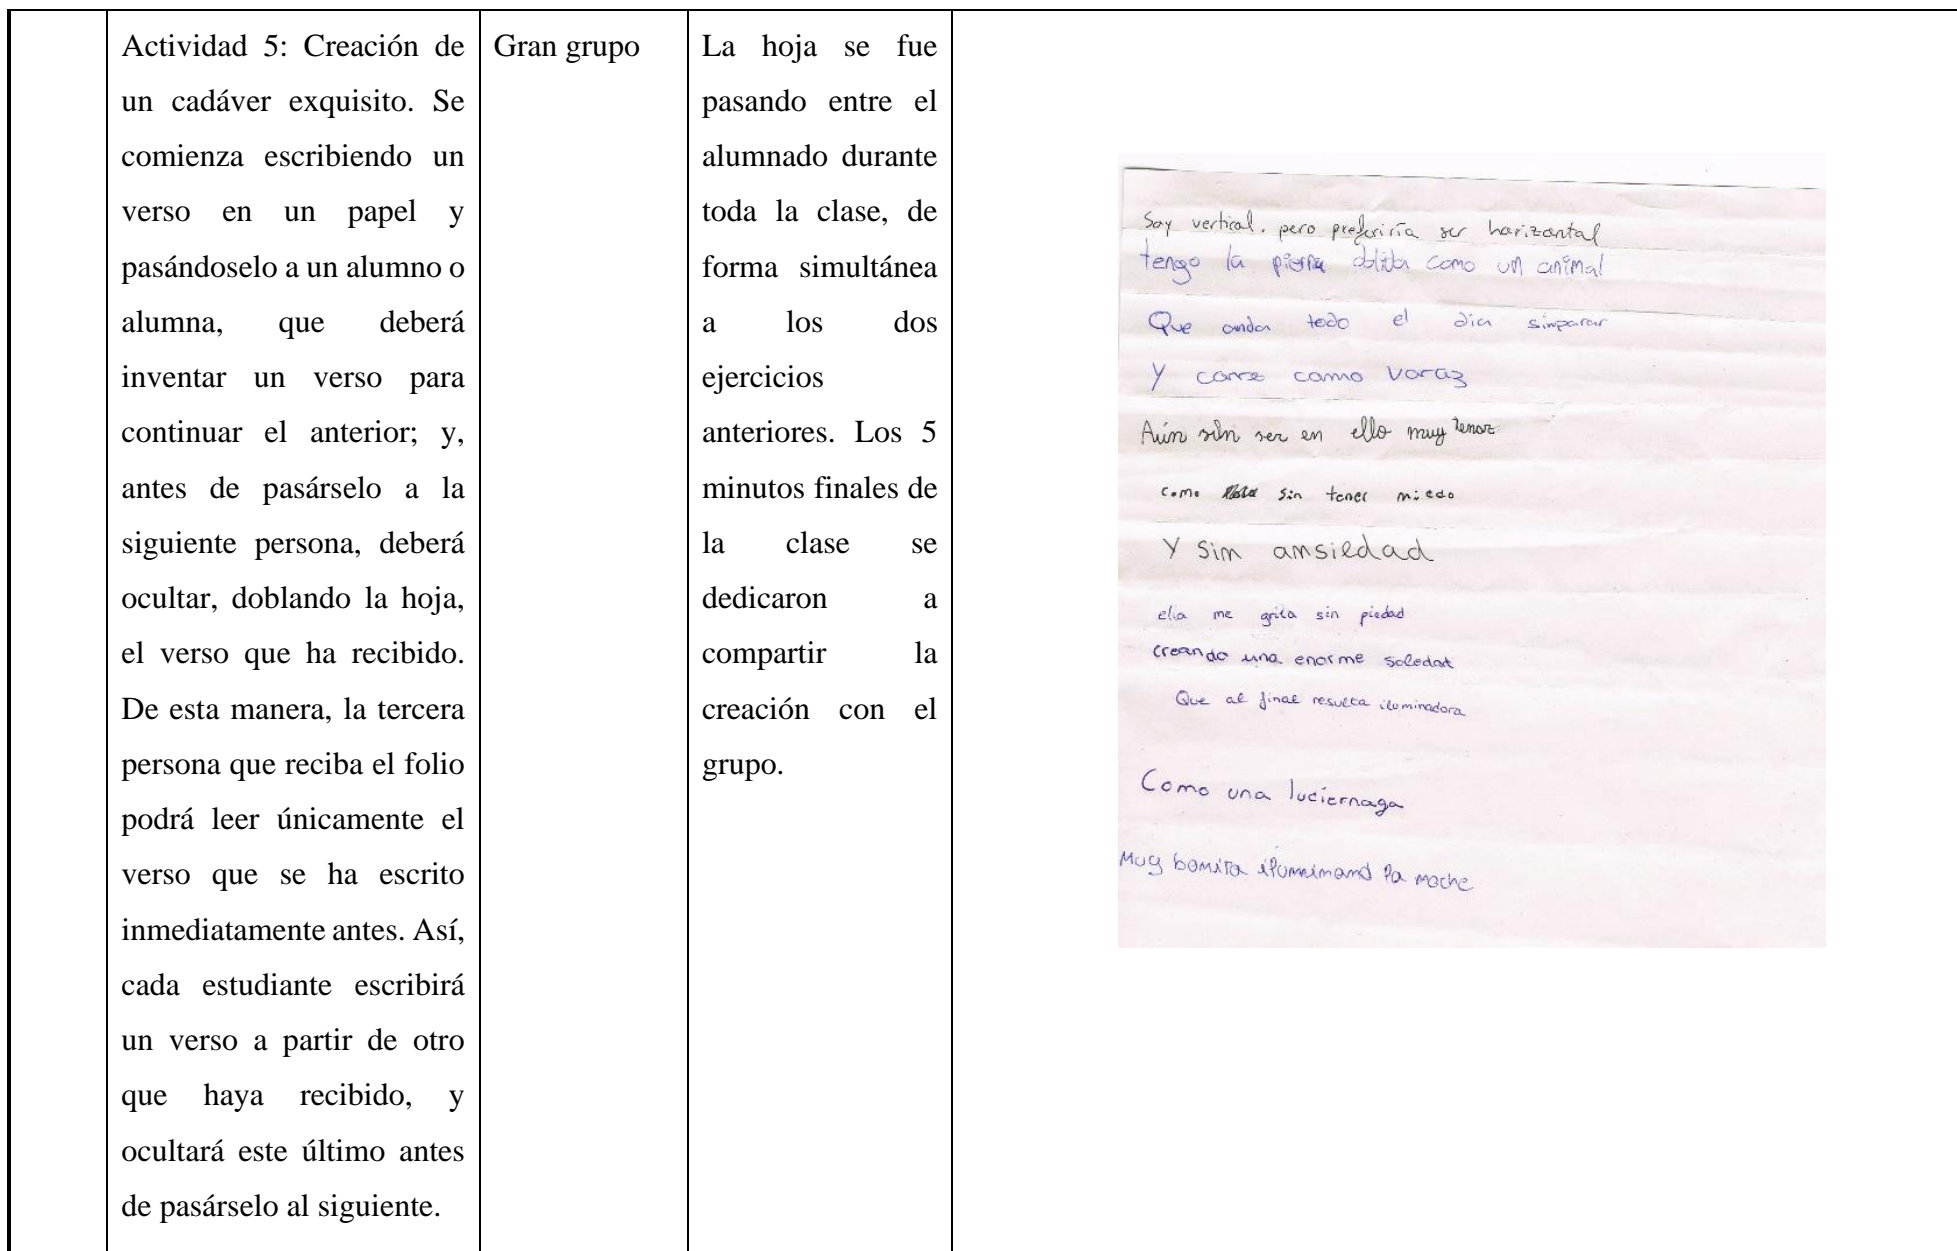 Actividad 5: Creación de
un cadáver exquisito. Se
comienza escribiendo un
verso en un papel y
pasándoselo a un alumno o
alumna, que deberá
inventar un verso para
continuar el anterior; y,
antes de pasárselo a la
siguiente persona, deberá
ocultar, doblando la hoja,
el verso que ha recibido.
De esta manera, la tercera
persona que reciba el folio
podrá leer únicamente el
verso que se ha escrito
inmediatamente antes. Así,
cada estudiante escribirá
un verso a partir de otro
que haya recibido, y
ocultará este último antes
de pasárselo al siguiente.
Gran grupo
La hoja se fue
pasando entre el
alumnado durante
toda la clase, de
forma simultánea
a los dos
ejercicios
anteriores. Los 5
minutos finales de
la clase se
dedicaron a
compartir la
creación con el
grupo.
Soy vertical. pero preferiría ser horizontal
tengo la pierna como un animal
Que anda todo el dia simparar
Y corre como voraz
Aún sin ser en ello muy tenaz
como sin tener miedo
Y sin ansiedad
ella me grita sin piedad
creando una enorme soledad
Que al final resulta iluminadora
Como una luciérnaga
Muy bonita iluminand la noche